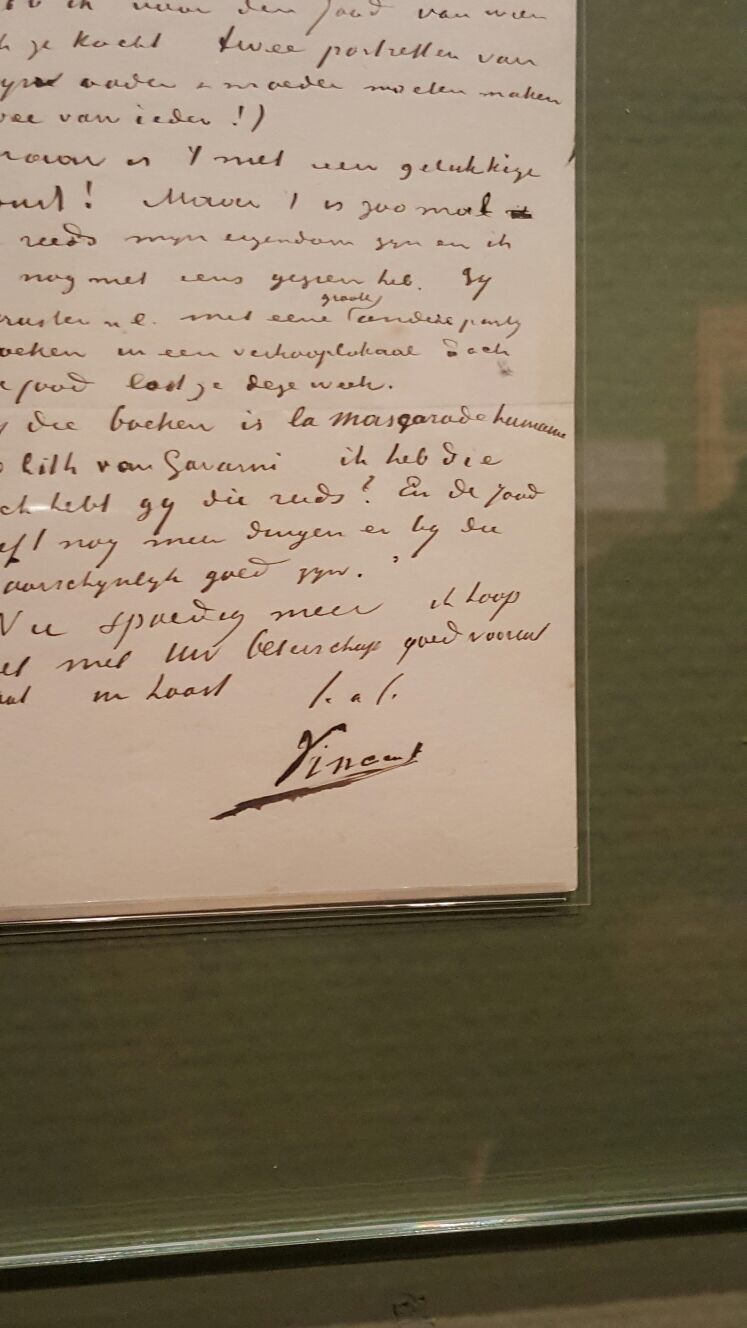 ik voor den Jood van wien
je kocht twee portretten van
vader & moeder moeten maken
van ieder !)
is 't met een gelukkige
! Maar 't is zoo mal
reeds myn eigendom zyn en ik
nog niet eens gezien heb. Zy
n.l. met eene groote andere party
boeken in een verkooplokaal doch
Jood lost ze deze week.
die boeken is la mascarade humaine
lith van Gavarni ik heb die
hebt gy die reeds? En de Jood
nog meer dingen er by die
waarschynlyk goed zyn.
Nu spoedig meer ik hoop
met Uw beterschap goed vooruit
in haast t. à t.
Vincent